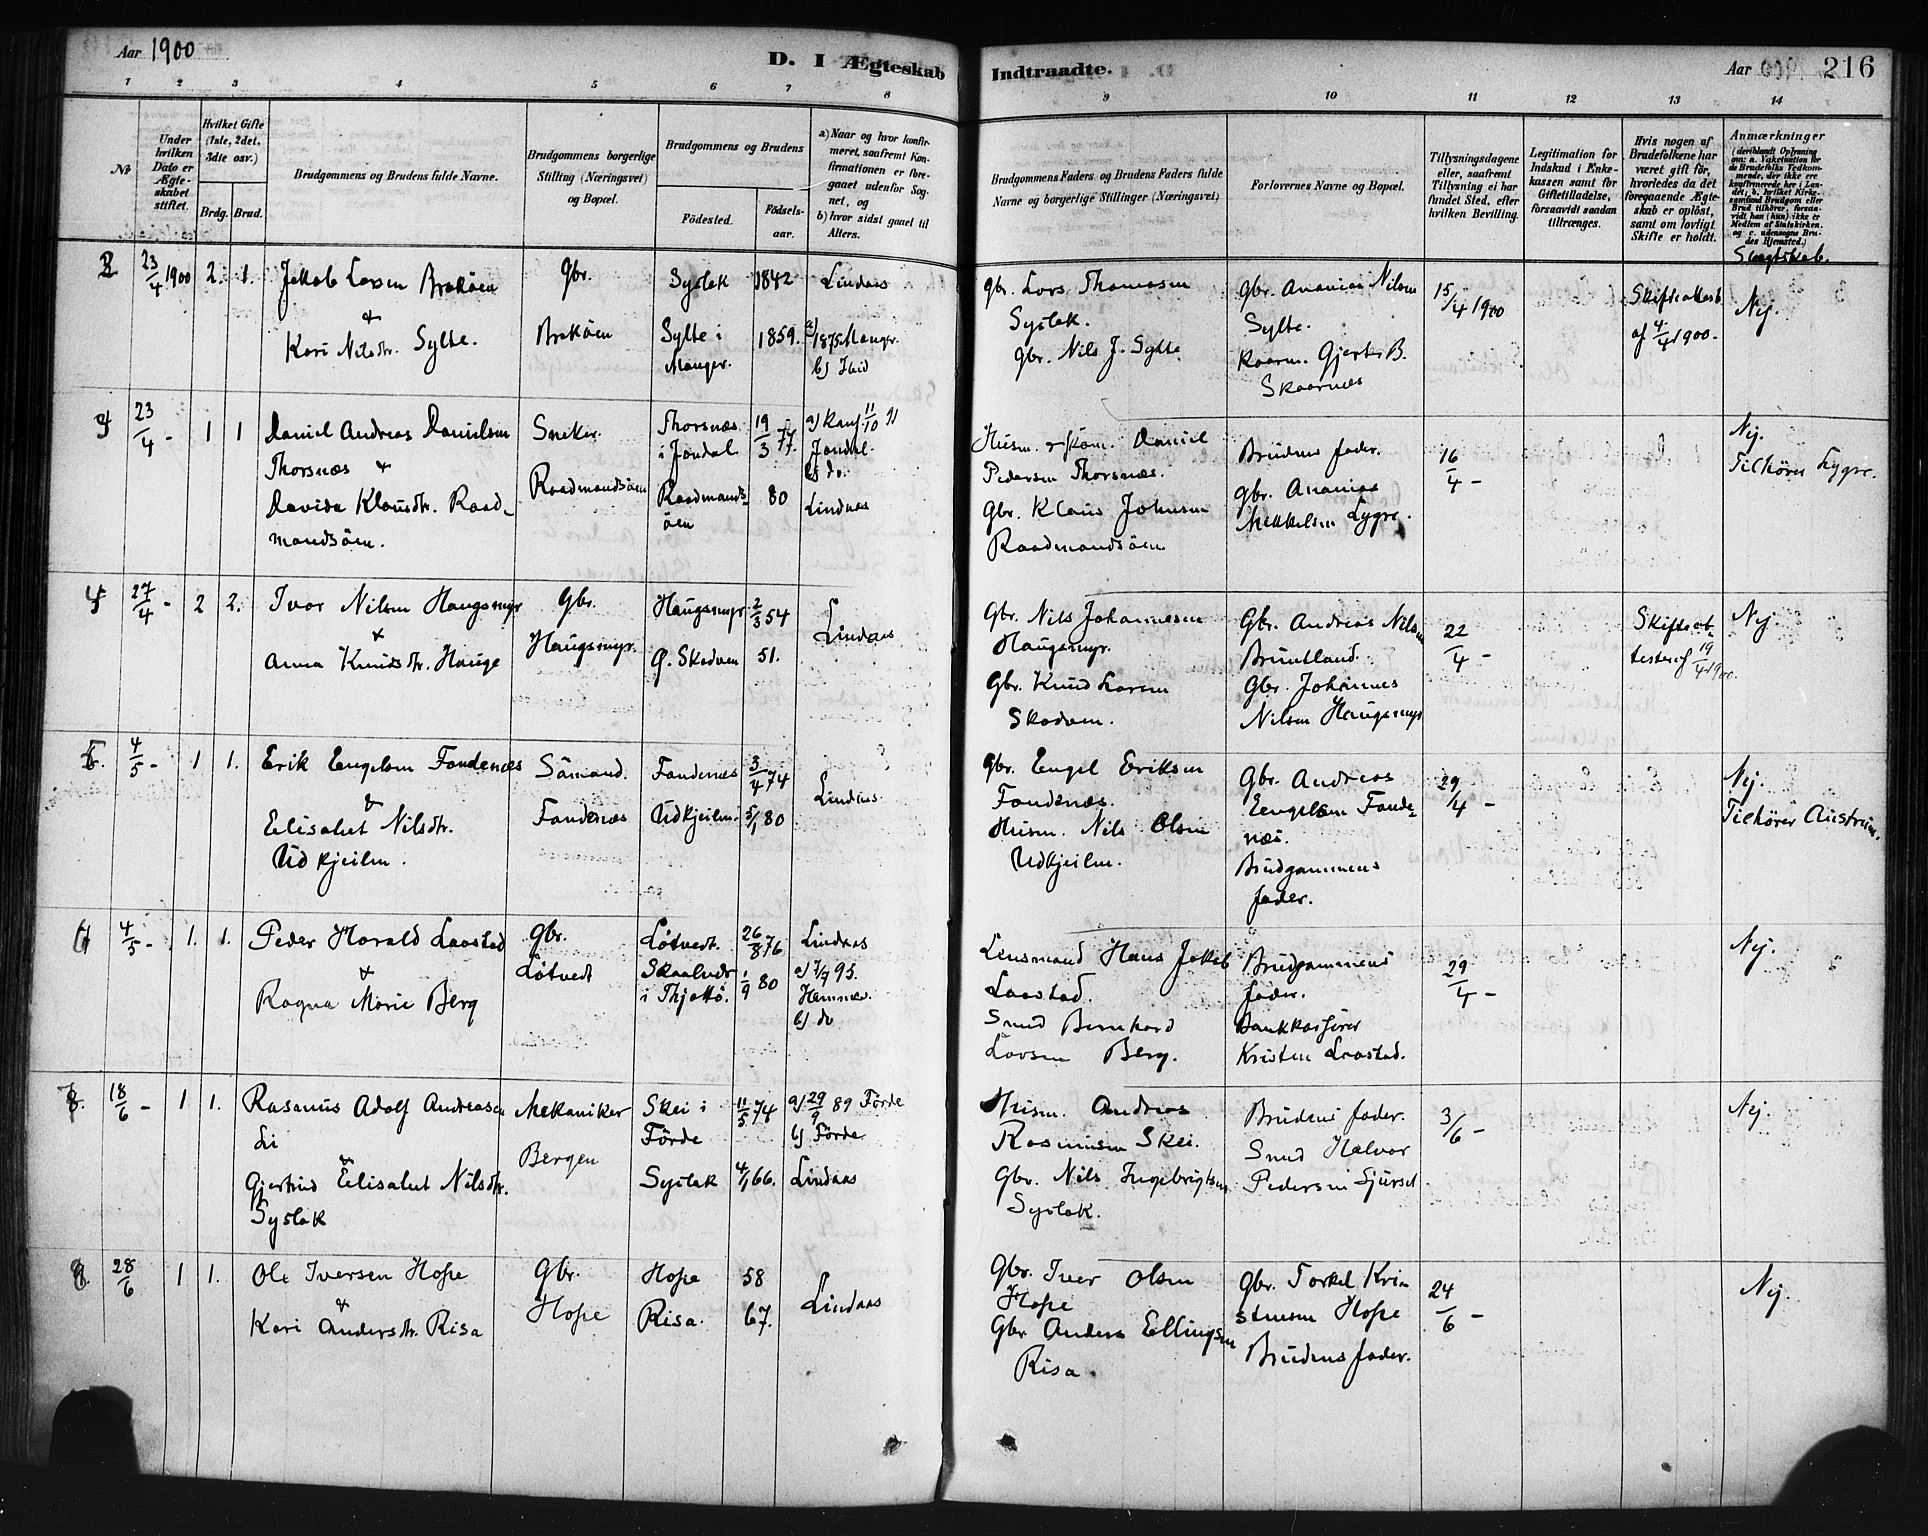 Aar 1900
D. I Ægteskab
Indtraadte.
Aar 1900 216
1 2 3 4 5 6 7 8 9 10 11 12 13 14
No
Under hvilken Dato er Ægteskabet stiftet.
Hvilket Gifte (1ste, 2det, 3die osv.)
Brdg. Brud.
Brudgommens og Brudens fulde Navne.
Brudgommens borgerlige Stilling (Næringsvei) og Bopæl.
Brudgommens og Brudens
Fødested.
Fødsels-aar.
a) Naar og hvor konfirmeret, saafremt Konfirmationen er foregaaet udenfor Sognet, og
b) hvor sidst gaaet til Alters.
Brudgommens Faders og Brudens Faders fulde Navne og borgerlige Stillinger (Næringsvei)
Forlovernes Navne og Bopæl.
Tillysningsdagene eller, saafremt Tillysning ei har fundet Sted, efter hvilken Bevilling.
Legitimation for Indskud i Enkekassen samt for Giftetilladelse, forsaavidt saadan tiltrænges.
Hvis nogen af Brudefolkene har været gift før, hvorledes da det foregaaende Ægteskab er opløst, samt om lovligt Skifte er holdt.
Anmærkninger
(deriblandt Oplysning om: a. Vakcination for de Brudefolks Vedkommende, der ikke ere konfirmerede her i Landet; b. hvilket Kirkesamfund Brudgom eller Brud tilhører, forsaavidt han (hun) ikke er Medlem af Statskirken. og c. udensogns Brudes Hjemsted.)
Slægtskab.
23/4 1900 2. 1. Jakob Larsen Brekøen
&
Kari Nilsdtr. Sylte.
Gbr.
Brekøen
Syslak
Sylte i
Manger.
1842
1859.
Lindaas
a) 1875 Manger.
b) Hid
Gbr. Lars Thomasen
Syslak.
Gbr. Nils J. Sylte.
Gbr. Ananias Nilsen
Sylte.
Kaarm. Gjert B.
Skaarnæs
15/4 1900
Skifteattest
af 4/4 1900.
Nej.
23/4 - 1 1 Daniel Andreas Danielsen
Thorsnæs &
Davida Klausdtr. Raad-
mandsøen.
Sneker
Raadmandsøen
Thorsnæs
i Jondal.
Raadmands-
øen
19/3 77.
80
a) Kauf 11/10 91
Jondal.
b) do.
Lindaas
Husm. Daniel
Pedersen Thorsnæs.
Gbr. Klaus Johnsen
Raadmandsøen
Brudens fader.
Gbr. Ananias
Mikkelsen Lygre.
16/4 -
Nej.
Tilhører Lygre.
27/4 - 2 2. Ivar Nilsen Haugsmyr
&
Anna Knudsdtr. Hauge
Gbr.
Haugsmyr.
Haugsmyr
Ø. Skodven
2/3 54
51.
Lindaas
Gbr. Nils Johannesen
Haugsmyr.
Gbr. Knud Larsen
Skodven.
Gbr. Andreas Nilsen
Bruntland.
Gbr. Johannes
Nilsen Haugsmyr
22/4 -
Skifteat-
test af 19/4 1900.
Nej.
4/5 - 1 1. Erik Engelsen Fondenæs
&
Elisabet Nilsdtr.
Udkjeilen.
Sømand.
Fondenæs
Fondenæs
Udkjeilen.
3/4 74
5/1 80
Lindaas
Gbr. Engel Eriksen
Fondenæs.
Husm. Nils Olsen
Udkjeilen.
Gbr. Andreas
Engelsen Fonde-
næs.
Brudgommens
fader.
29/4 -
Nej.
Tilhører Austrim.
4/5 - 1. 1. Peder Harald Laastad
&
Ragna Marie Berg
Gbr.
Løtvedt
Løtvedt.
Skaalvær
i Thjøttø.
26/8 76
1/9 80
Lindaas
a) 7/7 95.
Hemnes.
b) do
Lensmand Hans Jakob
Laastad.
Smed Bernhard
Larsen Berg.
Brudgommens
fader.
Bankkasserer
Kristen Laastad.
29/4 -
Nej.
18/6 - 1 1. Rasmus Adolf Andreasen
Li
&
Gjertrud Elisabet Nilsdtr.
Syslak
Mekaniker
Bergen
Skei i
Førde
Syslak
11/5 74
4/1 66.
a) 29/9 89 Førde
b) Førde
Lindaas
Husm. Andreas
Rasmusen Skei.
Gbr. Nils Ingebrigtsen
Syslak.
Brudens fader.
Smed Halvor
Pedersen Sjurset
3/6 -
Nej.
28/6 1 1. Ole Iversen Hope
&
Kari Andersdtr. Risa
Gbr.
Hope
Hope
Risa.
58
67.
Lindaas
Gbr. Iver Olsen
Hope
Gbr. Anders Ellingsen
Risa
Gbr. Torkel Kri-
stensen Hope
Brudens fader.
24/6 -
Nej.